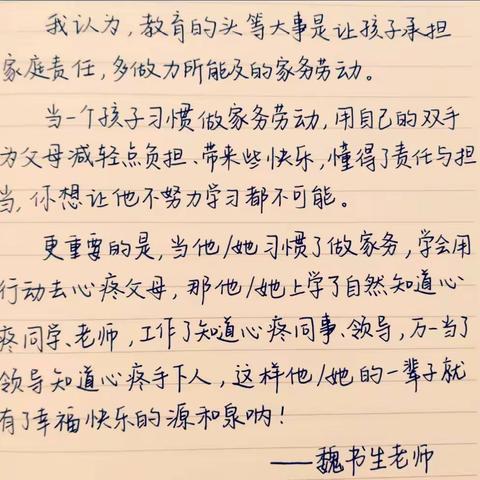 我认为,教育的头等大事是让孩子承担
家庭责任,多做力所能及的家务劳动。
当一个孩子习惯做家务劳动,用自己的双手
为父母减轻点负担、带来些快乐,懂得了责任与担
当,你想让他不努力学习都不可能。
更重要的是,当他/她习惯了做家务,学会用
行动去心疼父母,那他/她上学了自然知道心
疼同学、老师,工作了知道心疼同事、领导,万一当了
领导知道心疼手下人,这样他/她的一辈子就
有了幸福快乐的源和泉呐!
——魏书生老师